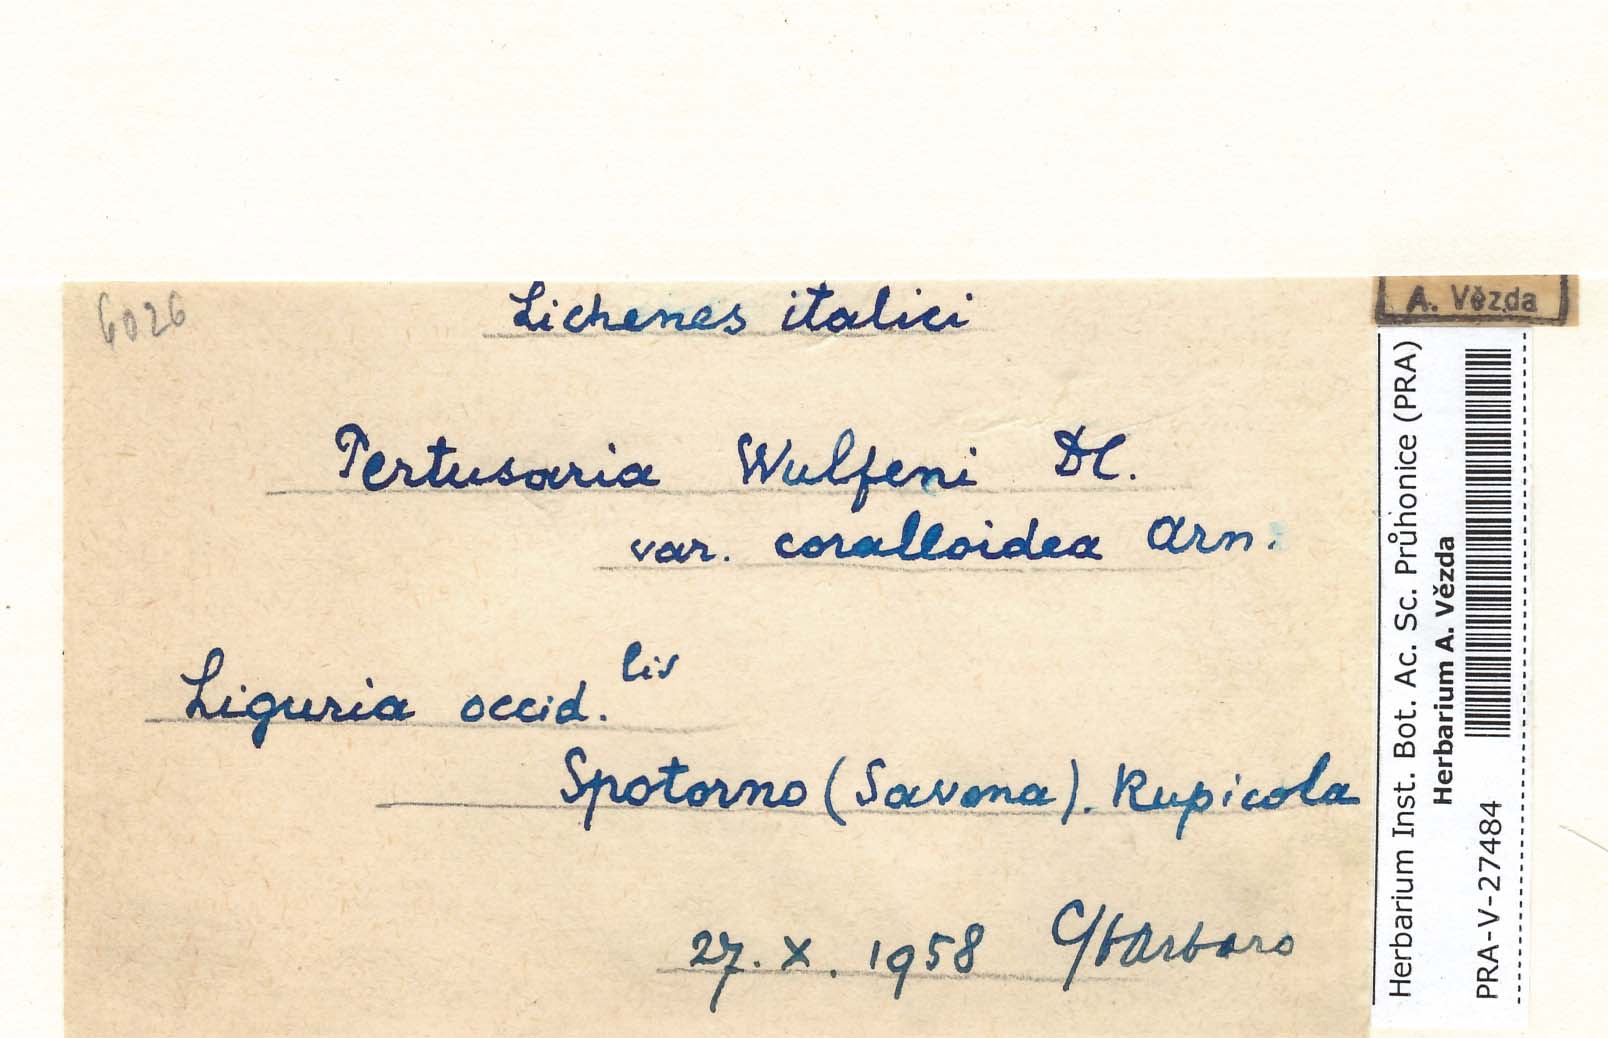 6026
Lichenes italici
A. Vězda
Pertusaria Wulfeni DC.
var. coralloidea Arn.
Liguria occid.lis
Spotorno (Savona). Rupicola
27. X. 1958 C/barbaro
Herbarium Inst. Bot. Ac. Sc. Průhonice (PRA)
Herbarium A. Vězda
PRA-V-27484